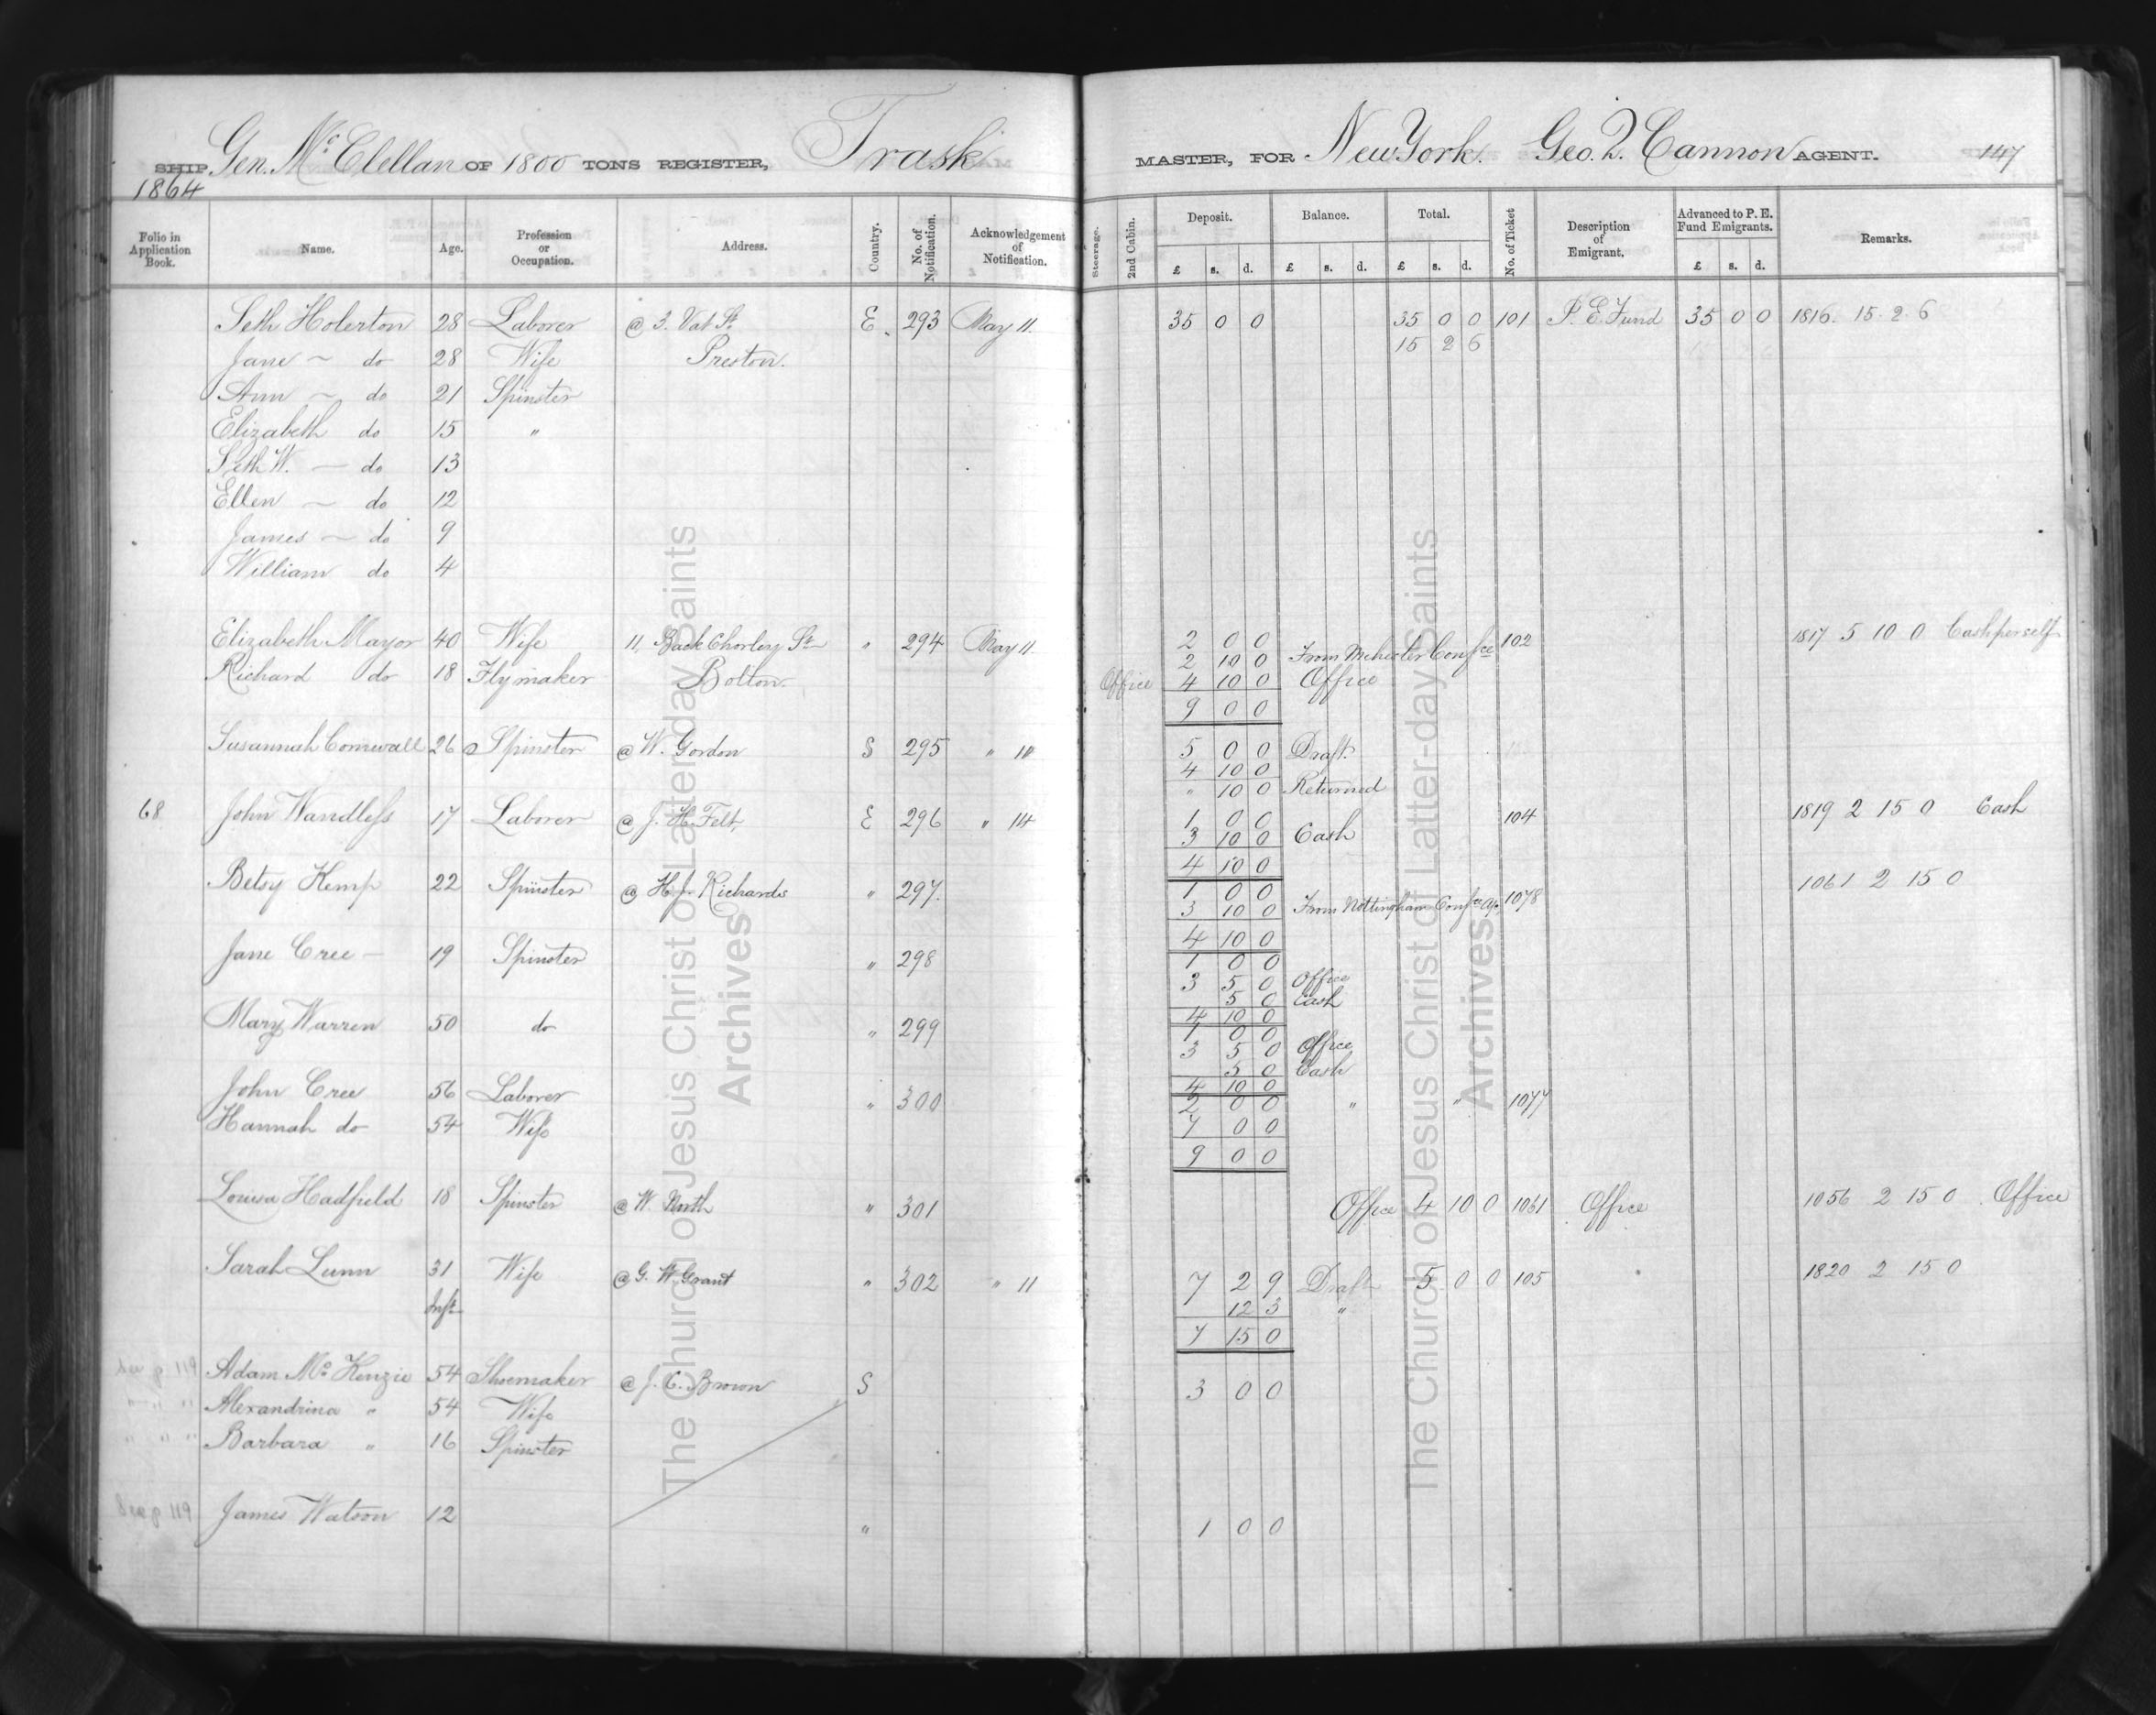 SHIP Gen. Mc Clellan OF 1800 TONS REGISTER, Trask MASTER, FOR New York. Geo. Q. Cannon AGENT. 147
1864
Folio in Application Book. Name. Age. Profession or Occupation. Address. Country. No. of Notification. Acknowledgement of Notification. Steerage. 2nd Cabin. Deposit. Balance. Total. No. of Ticket Description of Emigrant. Advanced to P. E. Fund Emigrants. Remarks.
£ s. d. £ s. d. £ s. d. £ s. d.
Seth Holerton 28 Laborer @ 3. Vat St. E. 293 May 11. 35 0 0 35 0 0 101 P. E. Fund 35 0 0 1816. 15. 2. 6
Jane ~ do 28 Wife Preston. 15 2 6
Ann ~ do 21 Spinster
Elizabeth do 15 "
Seth W. — do 13
Ellen ~ do 12
James ~ do 9
William do 4
Elizabeth Mayor 40 Wife 11, Back Chorley St " 294 May 11. 2 0 0 102 1817 5 10 0 Cash per self
2 10 0 From Mchester Confce
Richard do 18 Flymaker Bolton. Office 4 10 0 Office
9 0 0
Susannah Cornwall 26 Spinster @ W. Gordon S 295 " 11 5 0 0 Draft.
4 10 0
" 10 0 Returned
68 John Wandless 17 Laborer @ J. H. Felt, E 296 " 14 1 0 0 104 1819 2 15 0 Cash
3 10 0 Cash
4 10 0
Betsy Kemp 22 Spinster @ H. J. Richards " 297. 1 0 0 1061 2 15 0
3 10 0 From Nottingham Confce 1078
4 10 0
Jane Cree — 19 Spinster " 298 1 0 0
3 5 0 Office
5 0 Cash
4 10 0
Mary Warren 50 do " 299 1 0 0
3 5 0 Office
5 0 Cash
4 10 0
John Cree 56 Laborer " 300 2 0 0 " " 1077
Hannah do 54 Wife 7 0 0
9 0 0
Louisa Hadfield 18 Spinster @ W. North " 301 Office 4 10 0 1061 Office 1056 2 15 0 Office
Sarah Lunn 31 Wife @ G. W. Grant " 302 " 11 7 2 9 Draft 5 0 0 105 1820 2 15 0
Inft 12 3 "
7 15 0
See p 119 Adam Mc Kenzie 54 Shoemaker @ J. C. Brown S 3 0 0
" " " Alexandrina " 54 Wife
" " " Barbara " 16 Spinster
See p 119 James Watson 12 " 1 0 0
The Church of Jesus Christ of Latter-day Saints
Archives
The Church of Jesus Christ of Latter-day Saints
Archives